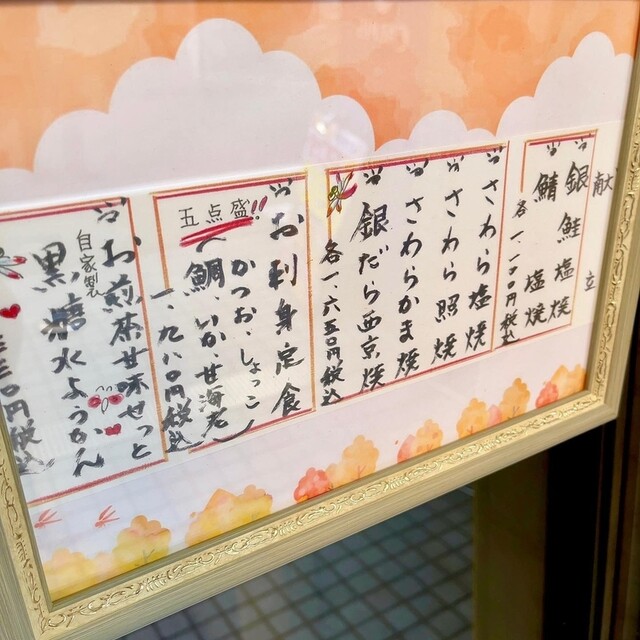 献立
銀鮭塩焼
鯖塩焼
各一、一〇〇円税込
さわら塩焼
さわら照焼
さわらかま焼
銀だら西京焼
各一、六五〇円税込
お刺身定食
五点盛!!
かつお、しょっこ
(鯛、いか、甘海老)
一、九八〇円税込
お煎茶甘味せっと
自家製
黒糖水ようかん
円税込